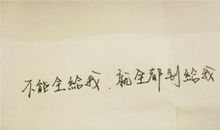 不能全給我．就全都别給我